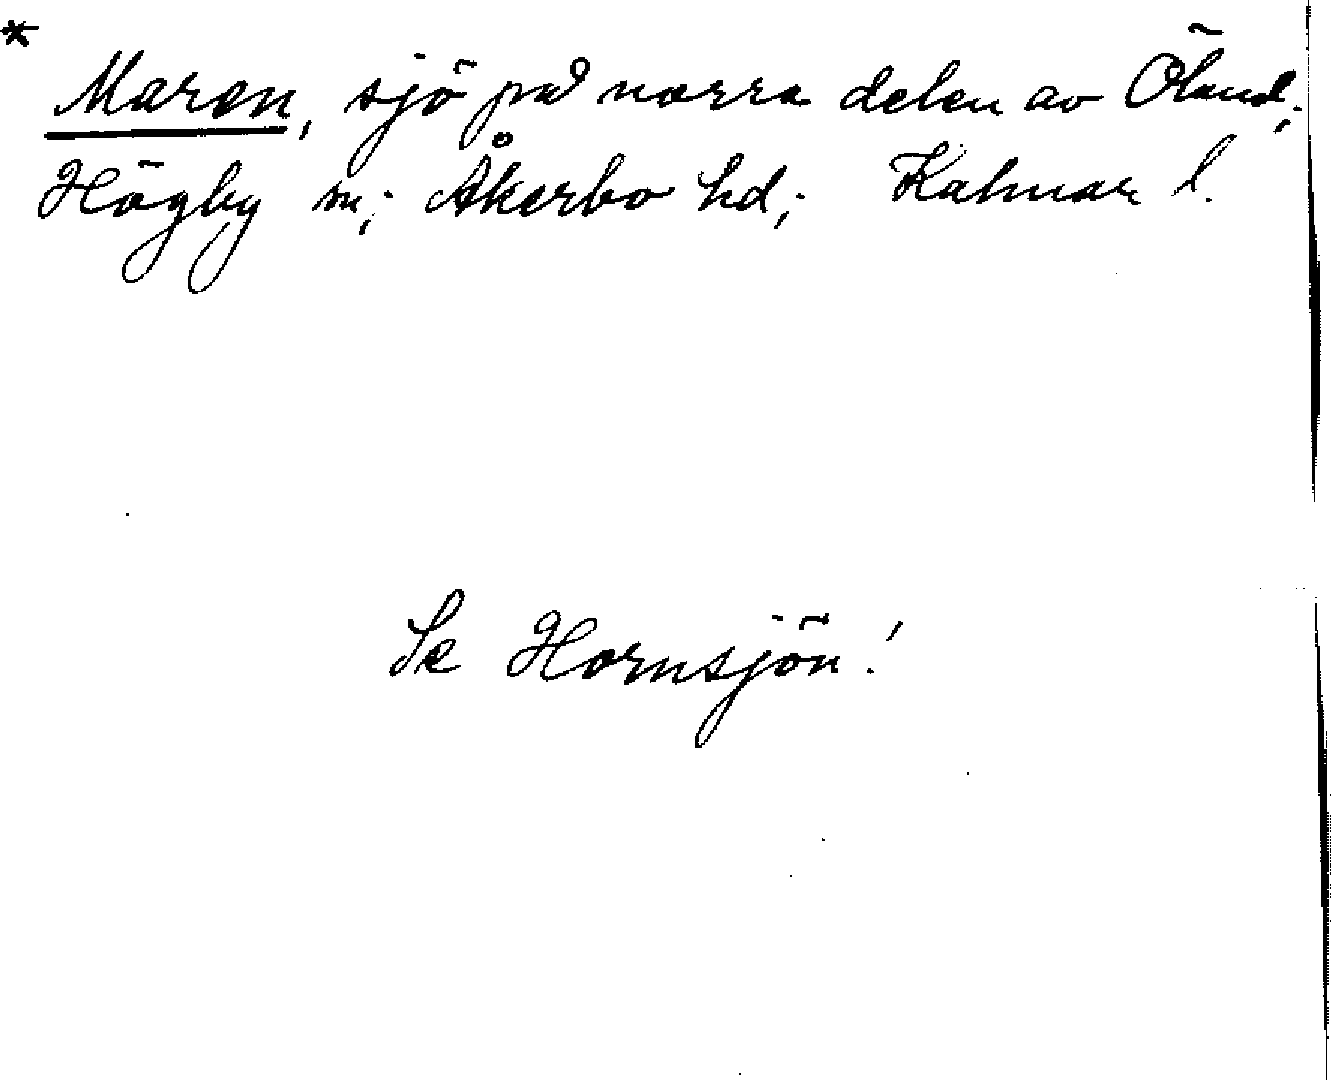 * Maren, sjö på norra delen av Öland;
Högby sn; Åkerbo hd; Kalmar l.
Se Hornsjön!